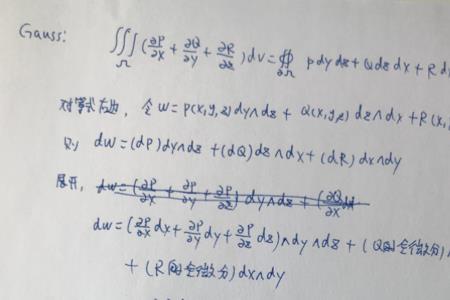 Gauss:
∭_Ω (∂P/∂x + ∂Q/∂y + ∂R/∂z) dv = ∯_∂Ω Pdydz + Qdzdx + Rd
对等式右边, 令 w = P(x,y,z)dy∧dz + Q(x,y,z) dz∧dx + R(x,
则 dw = (dP)dy∧dz + (dQ)dz∧dx + (dR)dx∧dy
展开, dw = (∂P/∂x + ∂P/∂y + ∂P/∂z) dy∧dz + (∂Q/∂x
dw = (∂P/∂x dx + ∂P/∂y dy + ∂P/∂z dz)∧dy∧dz + (Q的全微分)
+ (R的全微分)dx∧dy